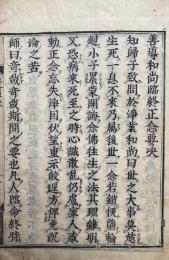 善導和尚臨終正念訣
知歸子致問於淨業和尚曰世之大事莫越
生死一息不來乃屬後世一念若錯便墮輪
迴小子累蒙開誨念佛往生之法其理雖明
又恐病來死至之時心識散亂仍慮家人惑
動正念忘失淨因伏望重示徑方俾沉
淪之苦
師曰奇哉奇哉斯問之要也凡人臨命終